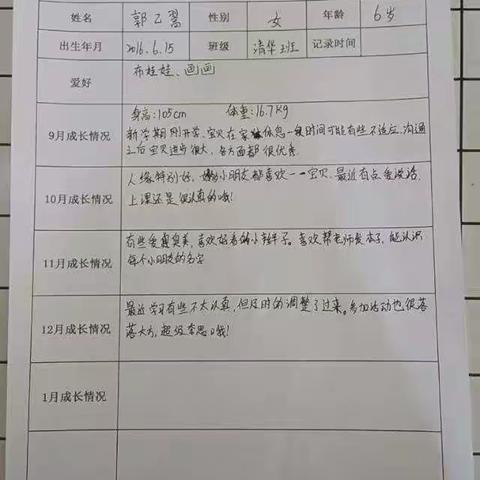 姓名 郭乙 性别 女 年龄 6岁
出生年月 2016.6.15 班级 清华班 记录时间
爱好 布娃娃、画画
身高:105cm 体重:16.7kg
9月成长情况
新学期刚开学,宝贝在家休息一段时间可能有些不适应,沟通
之后宝贝进步很大,各方面都很优秀
10月成长情况
人缘特别好,小朋友都喜欢——宝贝,最近有点爱说话
上课还是很认真的哦!
11月成长情况
有些爱臭美,喜欢好看的小辫子。喜欢帮老师发本子,能认识
每个小朋友的名字
12月成长情况
最近学习有些不太认真,但及时的调整了过来。参加活动也很落
落大方,超级有思哦!
1月成长情况